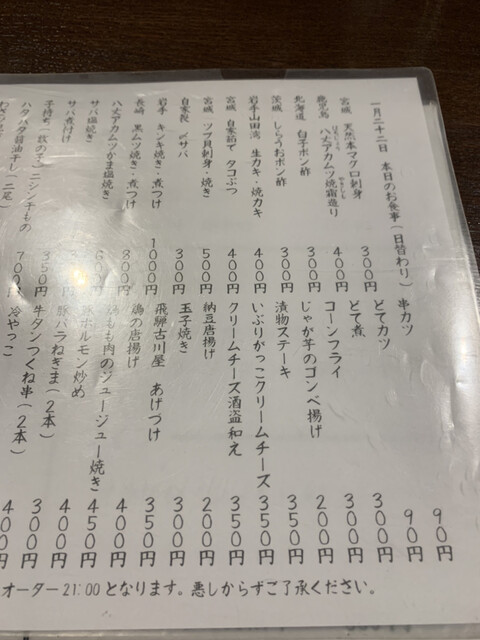 一月二十二日 本日のお食事(日替わり)
宮城 天然本マグロ刺身 300円
鹿児島 八丈アカムツ焼霜造り 400円
北海道 白子ポン酢 300円
茨城 しらうおポン酢 300円
岩手山田湾 生カキ・焼カキ 400円
宮城 自家茹で タコぶつ 400円
宮城 ツブ貝刺身・焼き 500円
自家製 〆サバ 300円
岩手 キンキ焼き・煮つけ 1000円
長崎 黒ムツ焼き・煮つけ 800円
八丈アカムツかま塩焼き 600円
サバ塩焼き
サバ煮付け 350円
子持ち(数の子)ニシン 700円
ハタハタ醤油干し(二尾)
串カツ 90円
どてカツ 90円
どて煮 300円
コーンフライ 300円
じゃが芋のゴンベ揚げ 200円
漬物ステーキ 350円
いぶりがっこクリームチーズ 350円
クリームチーズ酒盗和え 350円
納豆唐揚げ 200円
玉子焼き 300円
飛騨古川屋 あげづけ 350円
鶏の唐揚げ 400円
鶏もも肉のジュージュー焼き 450円
豚ホルモン炒め 400円
豚バラねぎま(2本) 300円
牛タンつくね串(2本) 400円
冷やっこ
オーダー21:00となります。悪しからずご了承ください。